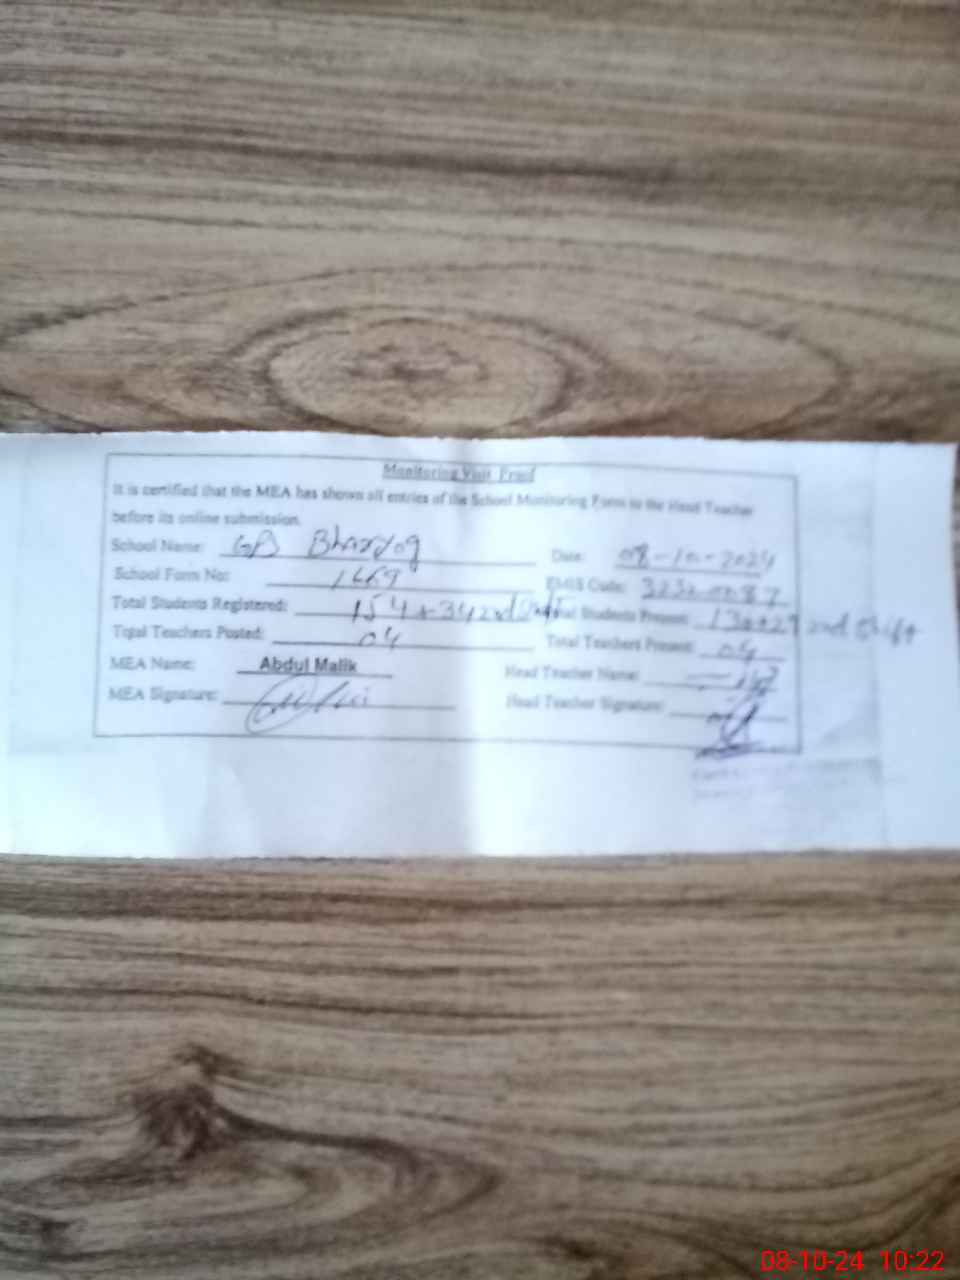 Monitoring Visit Proof
It is certified that the MEA has shown all entries of the School Monitoring Form to the Head Teacher
before its online submission.
School Name: Date: 08-10-2024
School Form No: EMIS Code:
Total Students Registered: 154+34 2nd Shift Total Students Present: 2nd Shift
Total Teachers Posted: 04 Total Teachers Present: 04
MEA Name: Abdul Malik Head Teacher Name:
MEA Signature: Head Teacher Signature:
08-10-24 10:22